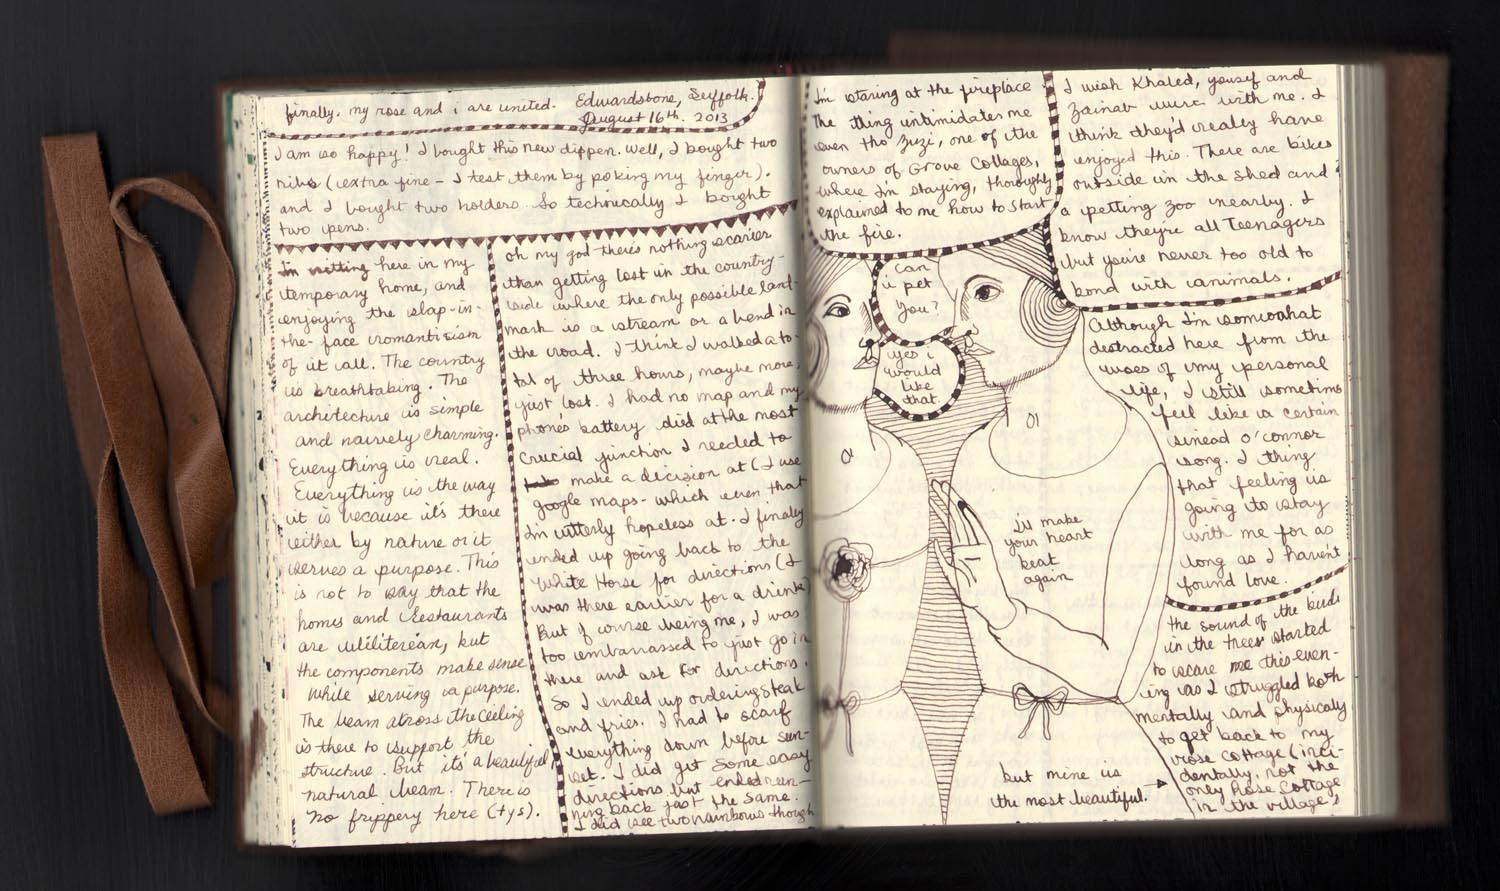 finally. my rose and i are united.
Edwardstone, Suffolk.
August 16th. 2013
I am so happy! I bought this new dippen. Well, I bought two
nibs (extra fine - I test them by poking my finger).
and I bought two holders. So technically I bought
two pens.
I'm writing here in my
temporary home, and
enjoying the slap-in-
the-face romanticism
of it all. The country
is breathtaking. The
architecture is simple
and naively charming.
Everything is real.
Everything is the way
it is because it's there
either by nature or it
serves a purpose. This
is not to say that the
homes and restaurants
are utiliterian, but
the components make sense
while serving a purpose.
The beam across the ceeling
is there to support the
structure. But it's a beautiful
natural beam. There is
no frippery here (tys).
oh my god there's nothing scarier
than getting lost in the country-
side where the only possible land-
mark is a stream or a bend in
the road. I think I walked a to-
tal of three hours, maybe more,
just lost. I had no map and my
phones battery died at the most
crucial junction I needed to
make a decision at (I use
google maps - which even that
I'm utterly hopeless at. I finally
ended up going back to the
White Horse for directions (I
was there earlier for a drink)
But of course being me, I was
too embarrassed to just go in
there and ask for directions.
So I ended up ordering steak
and fries. I had to scarf
everything down before sun-
set. I did get some easy
directions but ended run-
ning back just the same.
I did see two rainbows though
I'm staring at the fireplace
The thing intimidates me
even tho Zuzi, one of the
owners of Grove Cottages,
where I'm staying, thoroughly
explained to me how to start
the fire.
I wish Khaled, yousif and
Zainab were with me. I
think they'd really have
enjoyed this. There are bikes
outside in the shed and
a petting zoo nearby. I
know they're all Teenagers
but you're never too old to
bond with animals.
can
i pet
you?
yes i
would
like
that.
Although I'm somewhat
distracted here from the
woes of my personal
life, I still sometimes
feel like a certain
sinead o'connor
song. I thing
that feeling is
going to stay
with me for as
long as I havent
found love.
i'll make
your heart
beat
again
the sound of the birds
in the trees started
to scare me this even-
ing as I struggled both
mentally and physically
to get back to my
rose cottage (inci-
dentally, not the
only Rose Cottage
in the village,
but mine is
the most beautiful.